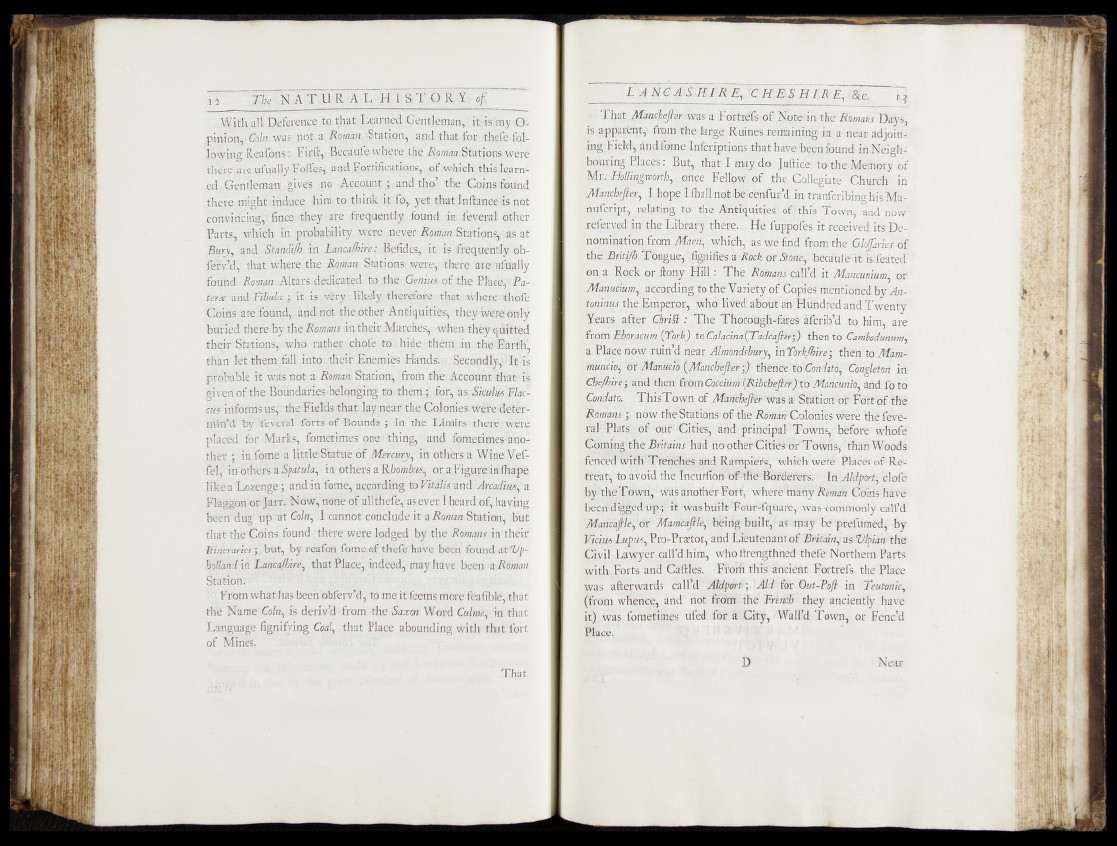 12 The NATURAL HISTORY of
With all Deference to that Learned Gentleman, it is my O-
pinion, Coln was not a Roman Station, and that for theſe fol-
lowing Reaſons: Firſt, Becauſe where the Roman Stations were
there are uſually Foſſes, and Fortifications, of which this learn-
ed Gentleman gives no Account; and tho' the Coins found
there might induce him to think it ſo, yet that Inſtance is not
convincing, ſince they are frequently found in ſeveral other
Parts, which in probability were never Roman Stations, as at
Bury, and Standiſh in Lancaſhire: Beſides, it is frequently ob-
ſerv'd, that where the Roman Stations were, there are uſually
found Roman Altars dedicated to the Genius of the Place, Pa-
teræ and Fibulæ; it is very likely therefore that where thoſe
Coins are found, and not the other Antiquities, they were only
buried there by the Romans in their Marches, when they quitted
their Stations, who rather choſe to hide them in the Earth,
than let them fall into their Enemies Hands. Secondly, It is
probable it was not a Roman Station, from the Account that is
given of the Boundaries belonging to them; for, as Siculus Flac-
cus informs us, the Fields that lay near the Colonies were deter-
min'd by ſeveral ſorts of Bounds; in the Limits there were
placed for Marks, ſometimes one thing, and ſometimes ano-
ther; in ſome a little Statue of Mercury, in others a Wine Veſ-
ſel, in others a Spatula, in others a Rhombus, or a Figure in ſhape
like a Lozenge; and in ſome, according to Vitalis and Arcadius, a
Flaggon or Jarr. Now, none of all theſe, as ever I heard of, having
been dug up at Coln, I cannot conclude it a Roman Station, but
that the Coins found there were lodged by the Romans in their
Itineraries; but, by reaſon ſome of theſe have been found at Up-
holland in Lancaſhire, that Place, indeed, may have been a Roman
Station.
From what has been obſerv'd, to me it ſeems more feaſible, that
the Name Coln, is deriv'd from the Saxon Word Culme, in that
Language ſignifying Coal, that Place abounding with that ſort
of Mines.
That
LANCASHIRE, CHESHIRE, &c. 13
That Mancheſter was a Fortreſs of Note in the Romans Days,
is apparent, from the large Ruines remaining in a near adjoin-
ing Field, and ſome Inſcriptions that have been found in Neigh-
bouring Places: But, that I may do Juſtice to the Memory of
Mr. Hollingworth, once Fellow of the Collegiate Church in
Mancheſter, I hope I ſhall not be cenſur'd in tranſcribing his Ma-
nuſcript, relating to the Antiquities of this Town, and now
reſerved in the Library there. He ſuppoſes it received its De-
nomination from Maen, which, as we find from the Gloſſaries of
the Britiſh Tongue, ſignifies a Rock or Stone, becauſe it is ſeated
on a Rock or ſtony Hill: The Romans call'd it Mancunium, or
Manucium, according to the Variety of Copies mentioned by An-
toninus the Emperor, who lived about an Hundred and Twenty
Years after Chriſt: The Thorough-fares aſcrib'd to him, are
from Eboracum (York) to Calacina (Tadcaſter;) then to Cambodunum,
a Place now ruin'd near Almondsbury, in Yorkſhire; then to Mam-
muncio, or Manucio (Mancheſter;) thence to Condato, Congleton in
Cheſhire; and then from Coccium (Ribcheſter) to Mancunio, and ſo to
Condato. This Town of Mancheſter was a Station or Fort of the
Romans; now the Stations of the Roman Colonies were the ſeve-
ral Plats of our Cities, and principal Towns, before whoſe
Coming the Britains had no other Cities or Towns, than Woods
fenced with Trenches and Rampiers, which were Places of Re-
treat, to avoid the Incurſion of the Borderers. In Aldport, cloſe
by the Town, was another Fort, where many Roman Coins have
been digged up; it was built Four-ſquare, was commonly call'd
Mancaſtle, or Mamcaſtle, being built, as may be preſumed, by
Vicius Lupus, Pro-Prætor, and Lieutenant of Britain, as Ulpian the
Civil Lawyer call'd him, who ſtrengthned theſe Northern Parts
with Forts and Caſtles. From this ancient Fortreſs the Place
was afterwards call'd Aldport; Ald for Out-Poſt in Teutonic,
(from whence, and not from the French they anciently have
it) was ſometimes uſed for a City, Wall'd Town, or Fenc'd
Place.
D Near